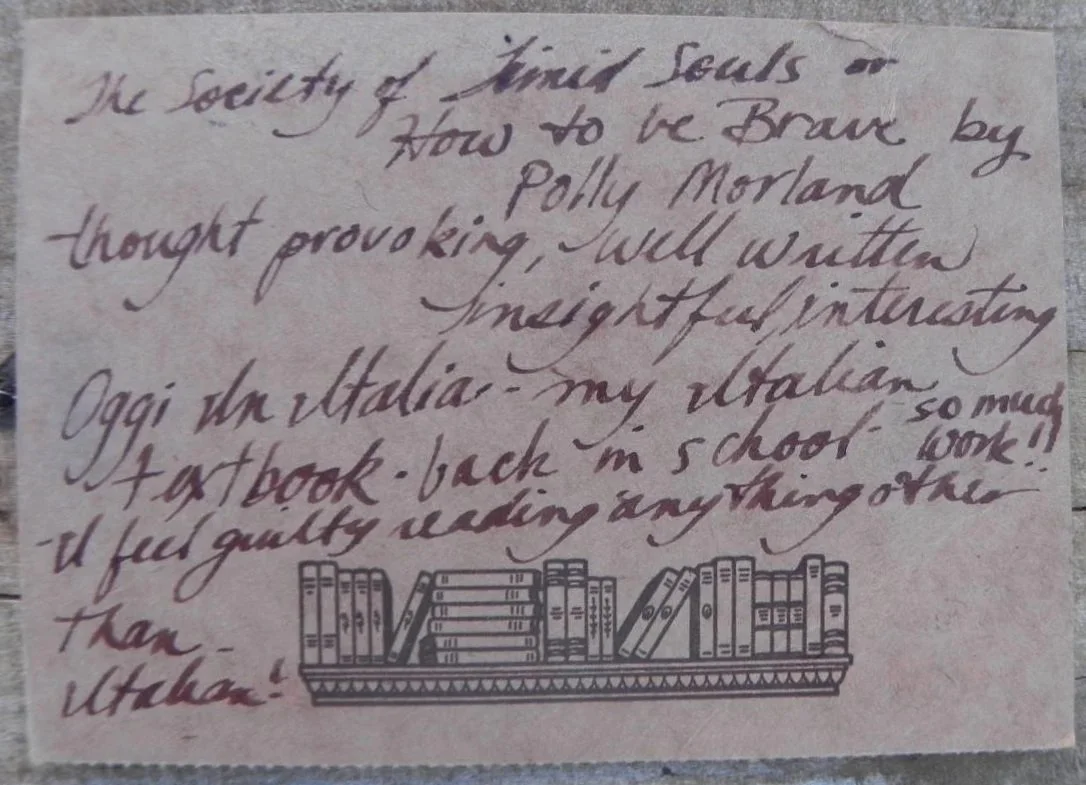 The Society of Timid Souls or
How to be Brave by
Polly Morland
thought provoking, well written
insightful, interesting
Oggi In Italia -- my Italian
textbook - back in school - so much
work!!
I feel guilty reading anything other
than
Italian!